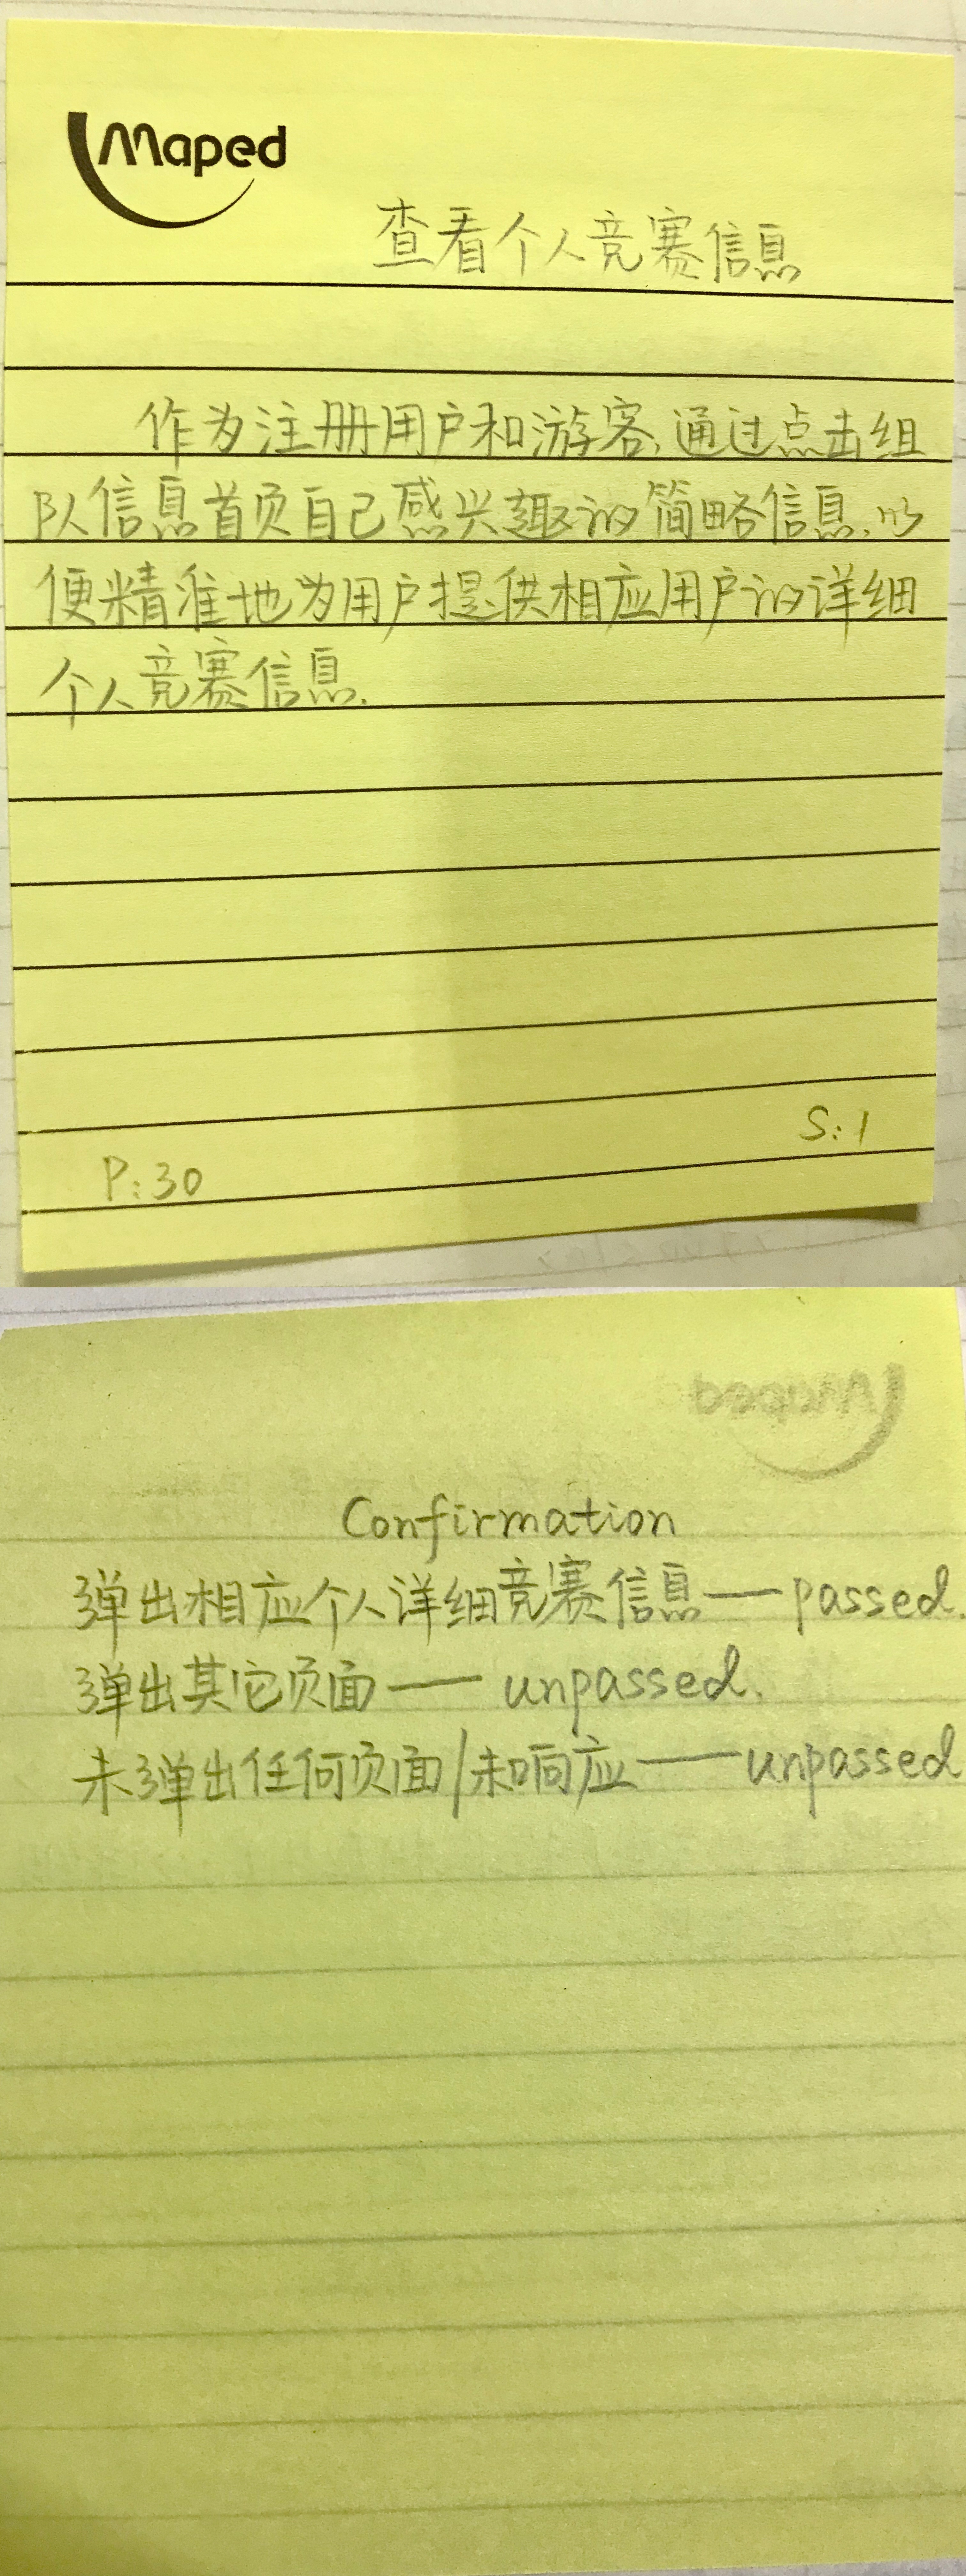 Maped
查看个人竞赛信息
作为注册用户和游客,通过点击组
队信息首页自己感兴趣的简略信息,以
便精准地为用户提供相应用户的详细
个人竞赛信息.
S:1
P:30
Maped
Confirmation
弹出相应个人详细竞赛信息——passed.
弹出其它页面——unpassed.
未弹出任何页面/未响应——unpassed